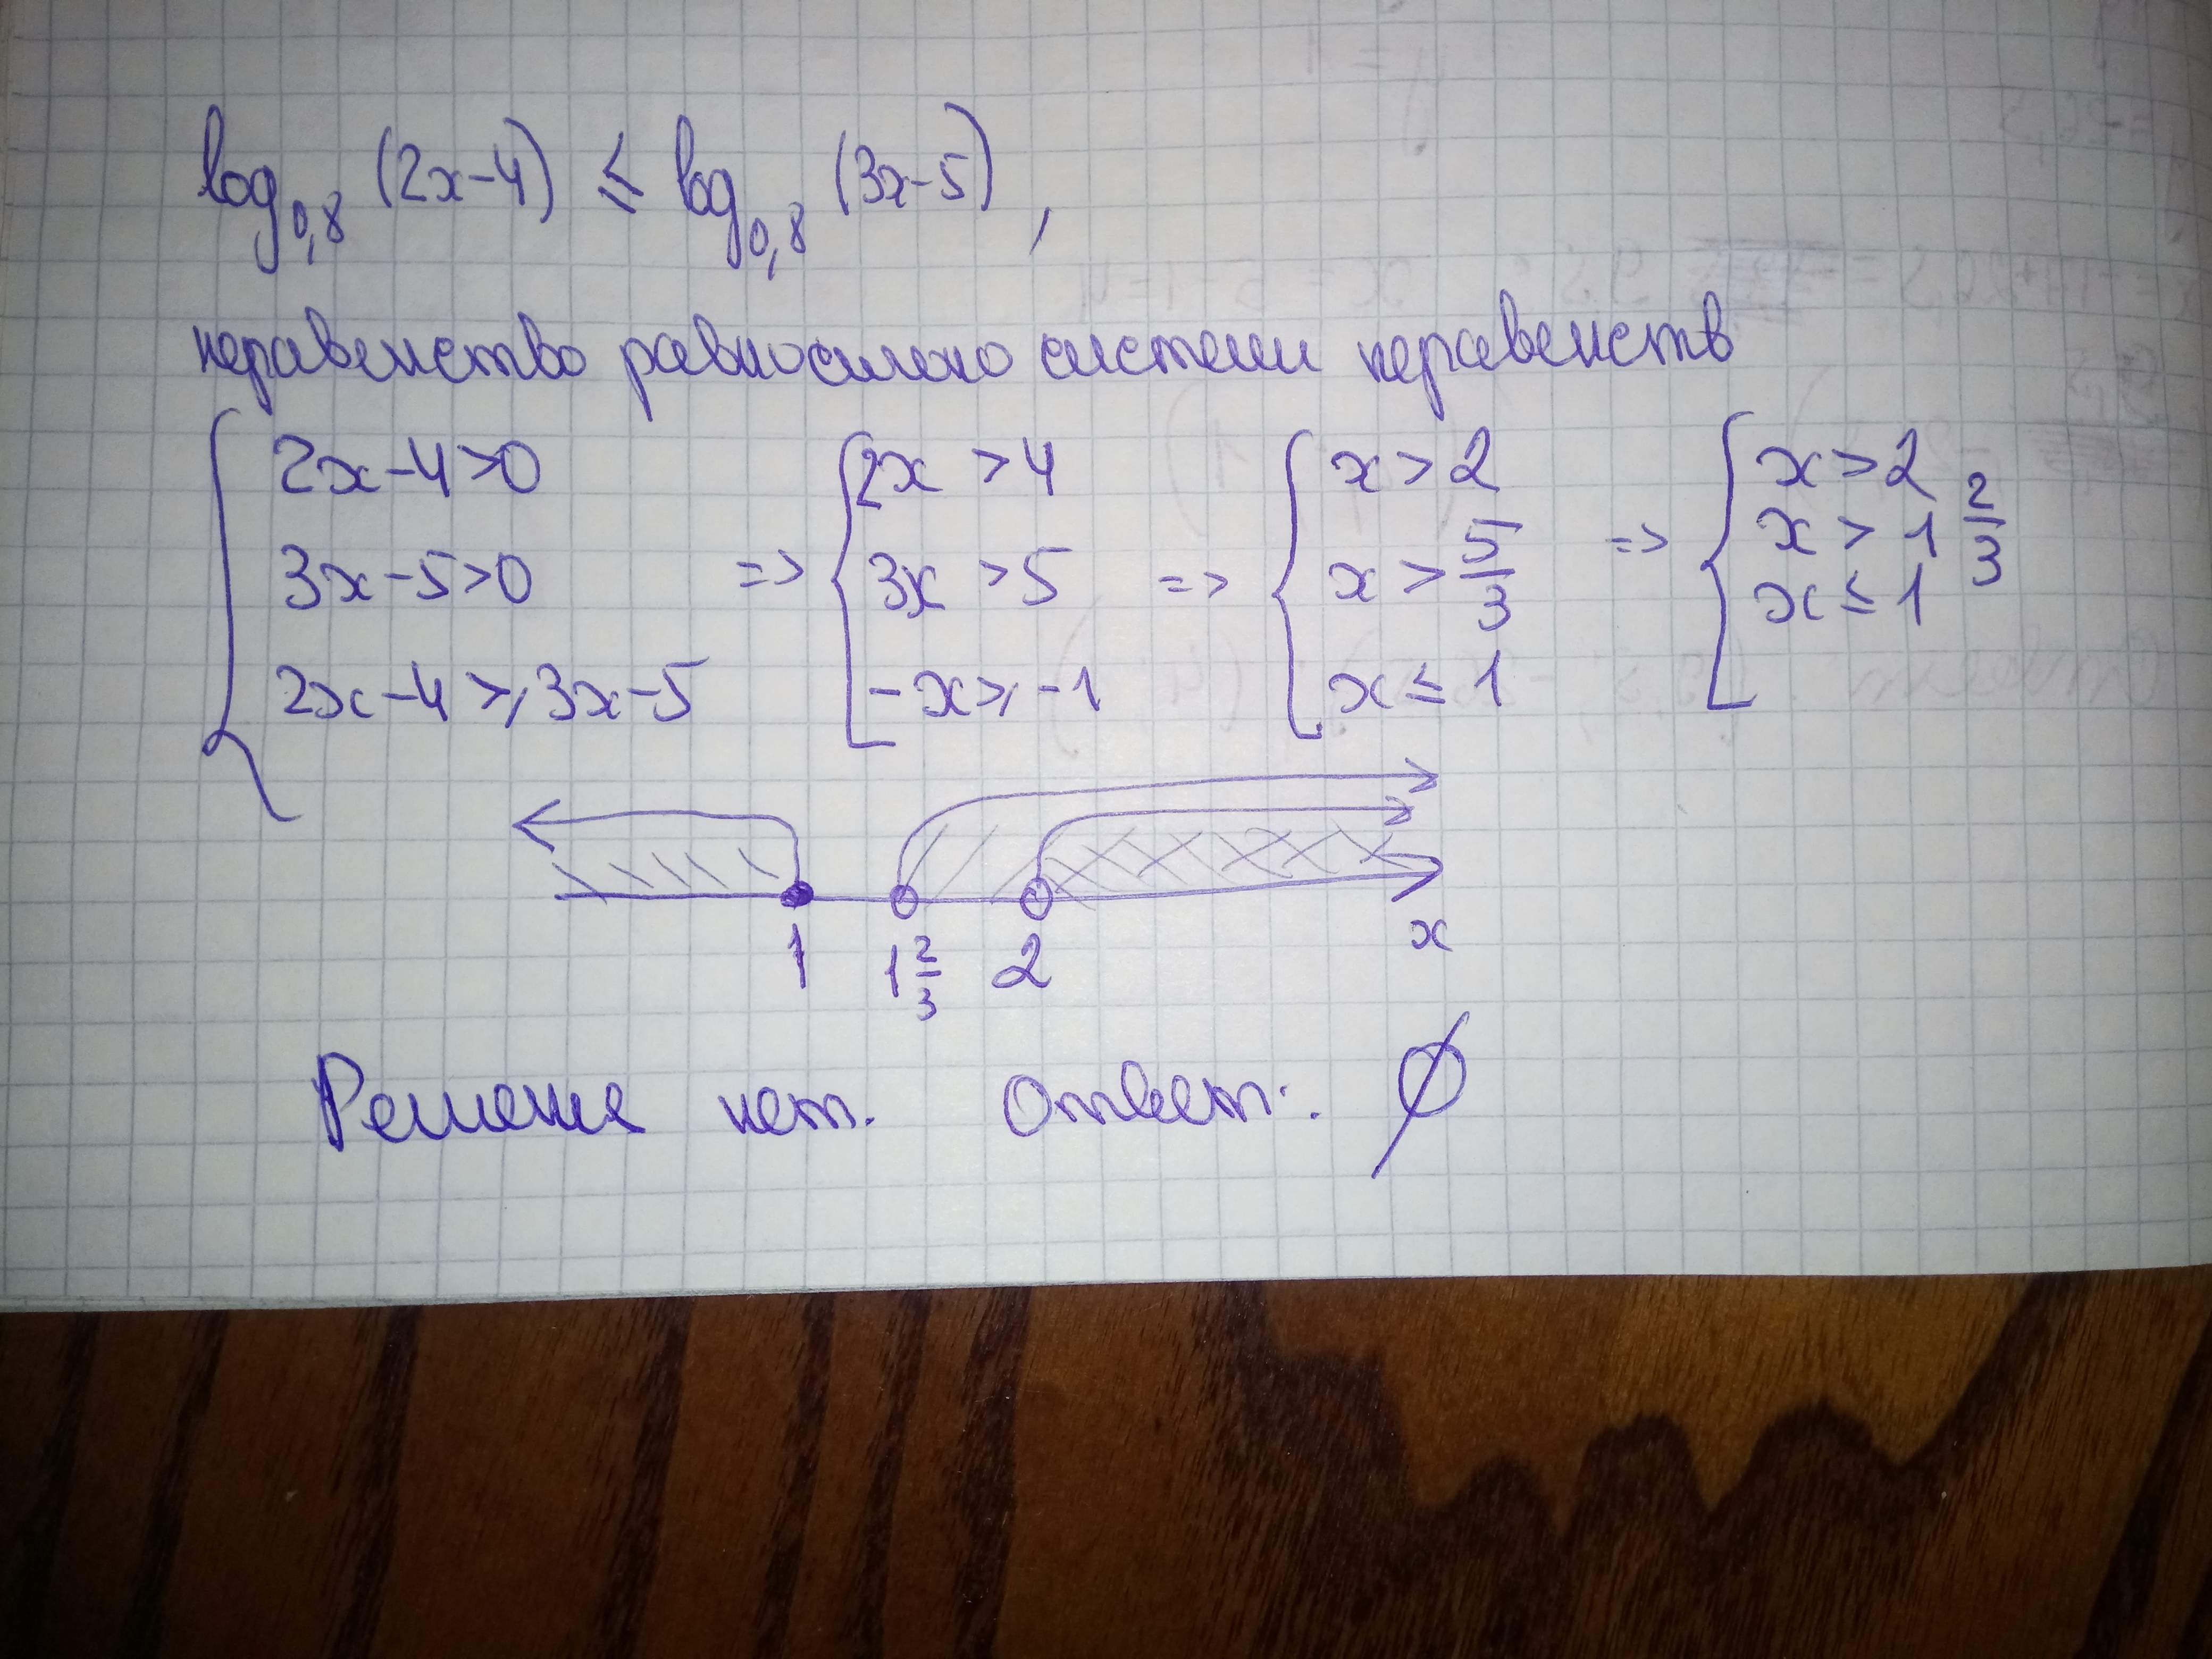 log₀,₈ (2x-4) ≤ log₀,₈ (3x-5),
неравенство равносильно системе неравенств
{ 2x-4>0 => { 2x >4 => { x>2 => { x>2
3x-5>0 3x >5 x>5/3 x>1 2/3
2x-4≥3x-5 -x≥-1 x≤1 x≤1
1 1 2/3 2 x
Решения нет. Ответ: ∅